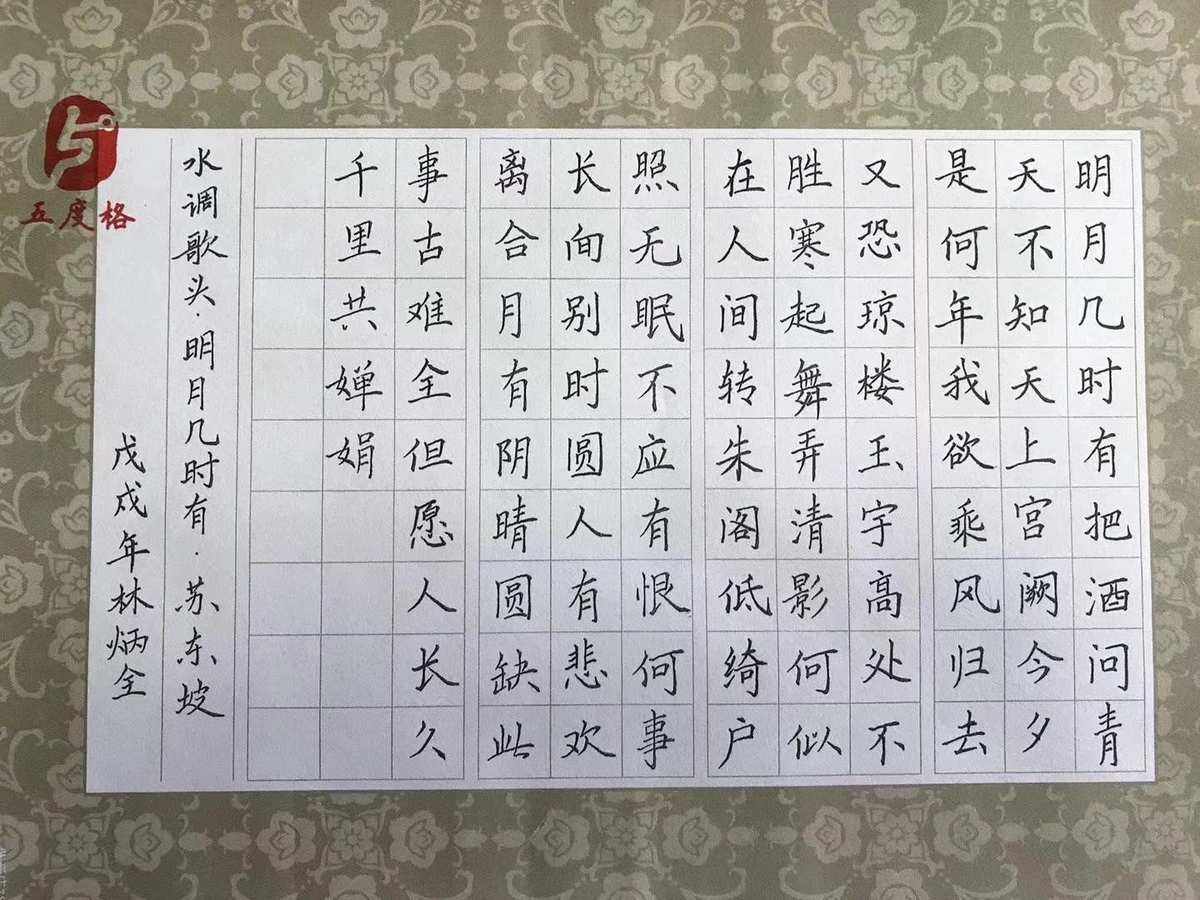 明月几时有把酒问青
天不知天上宫阙今夕
是何年我欲乘风归去
又恐琼楼玉宇高处不
胜寒起舞弄清影何似
在人间转朱阁低绮户
照无眠不应有恨何事
长向别时圆人有悲欢
离合月有阴晴圆缺此
事古难全但愿人长久
千里共婵娟
水调歌头·明月几时有·苏东坡
戊戌年林炳全
五度格